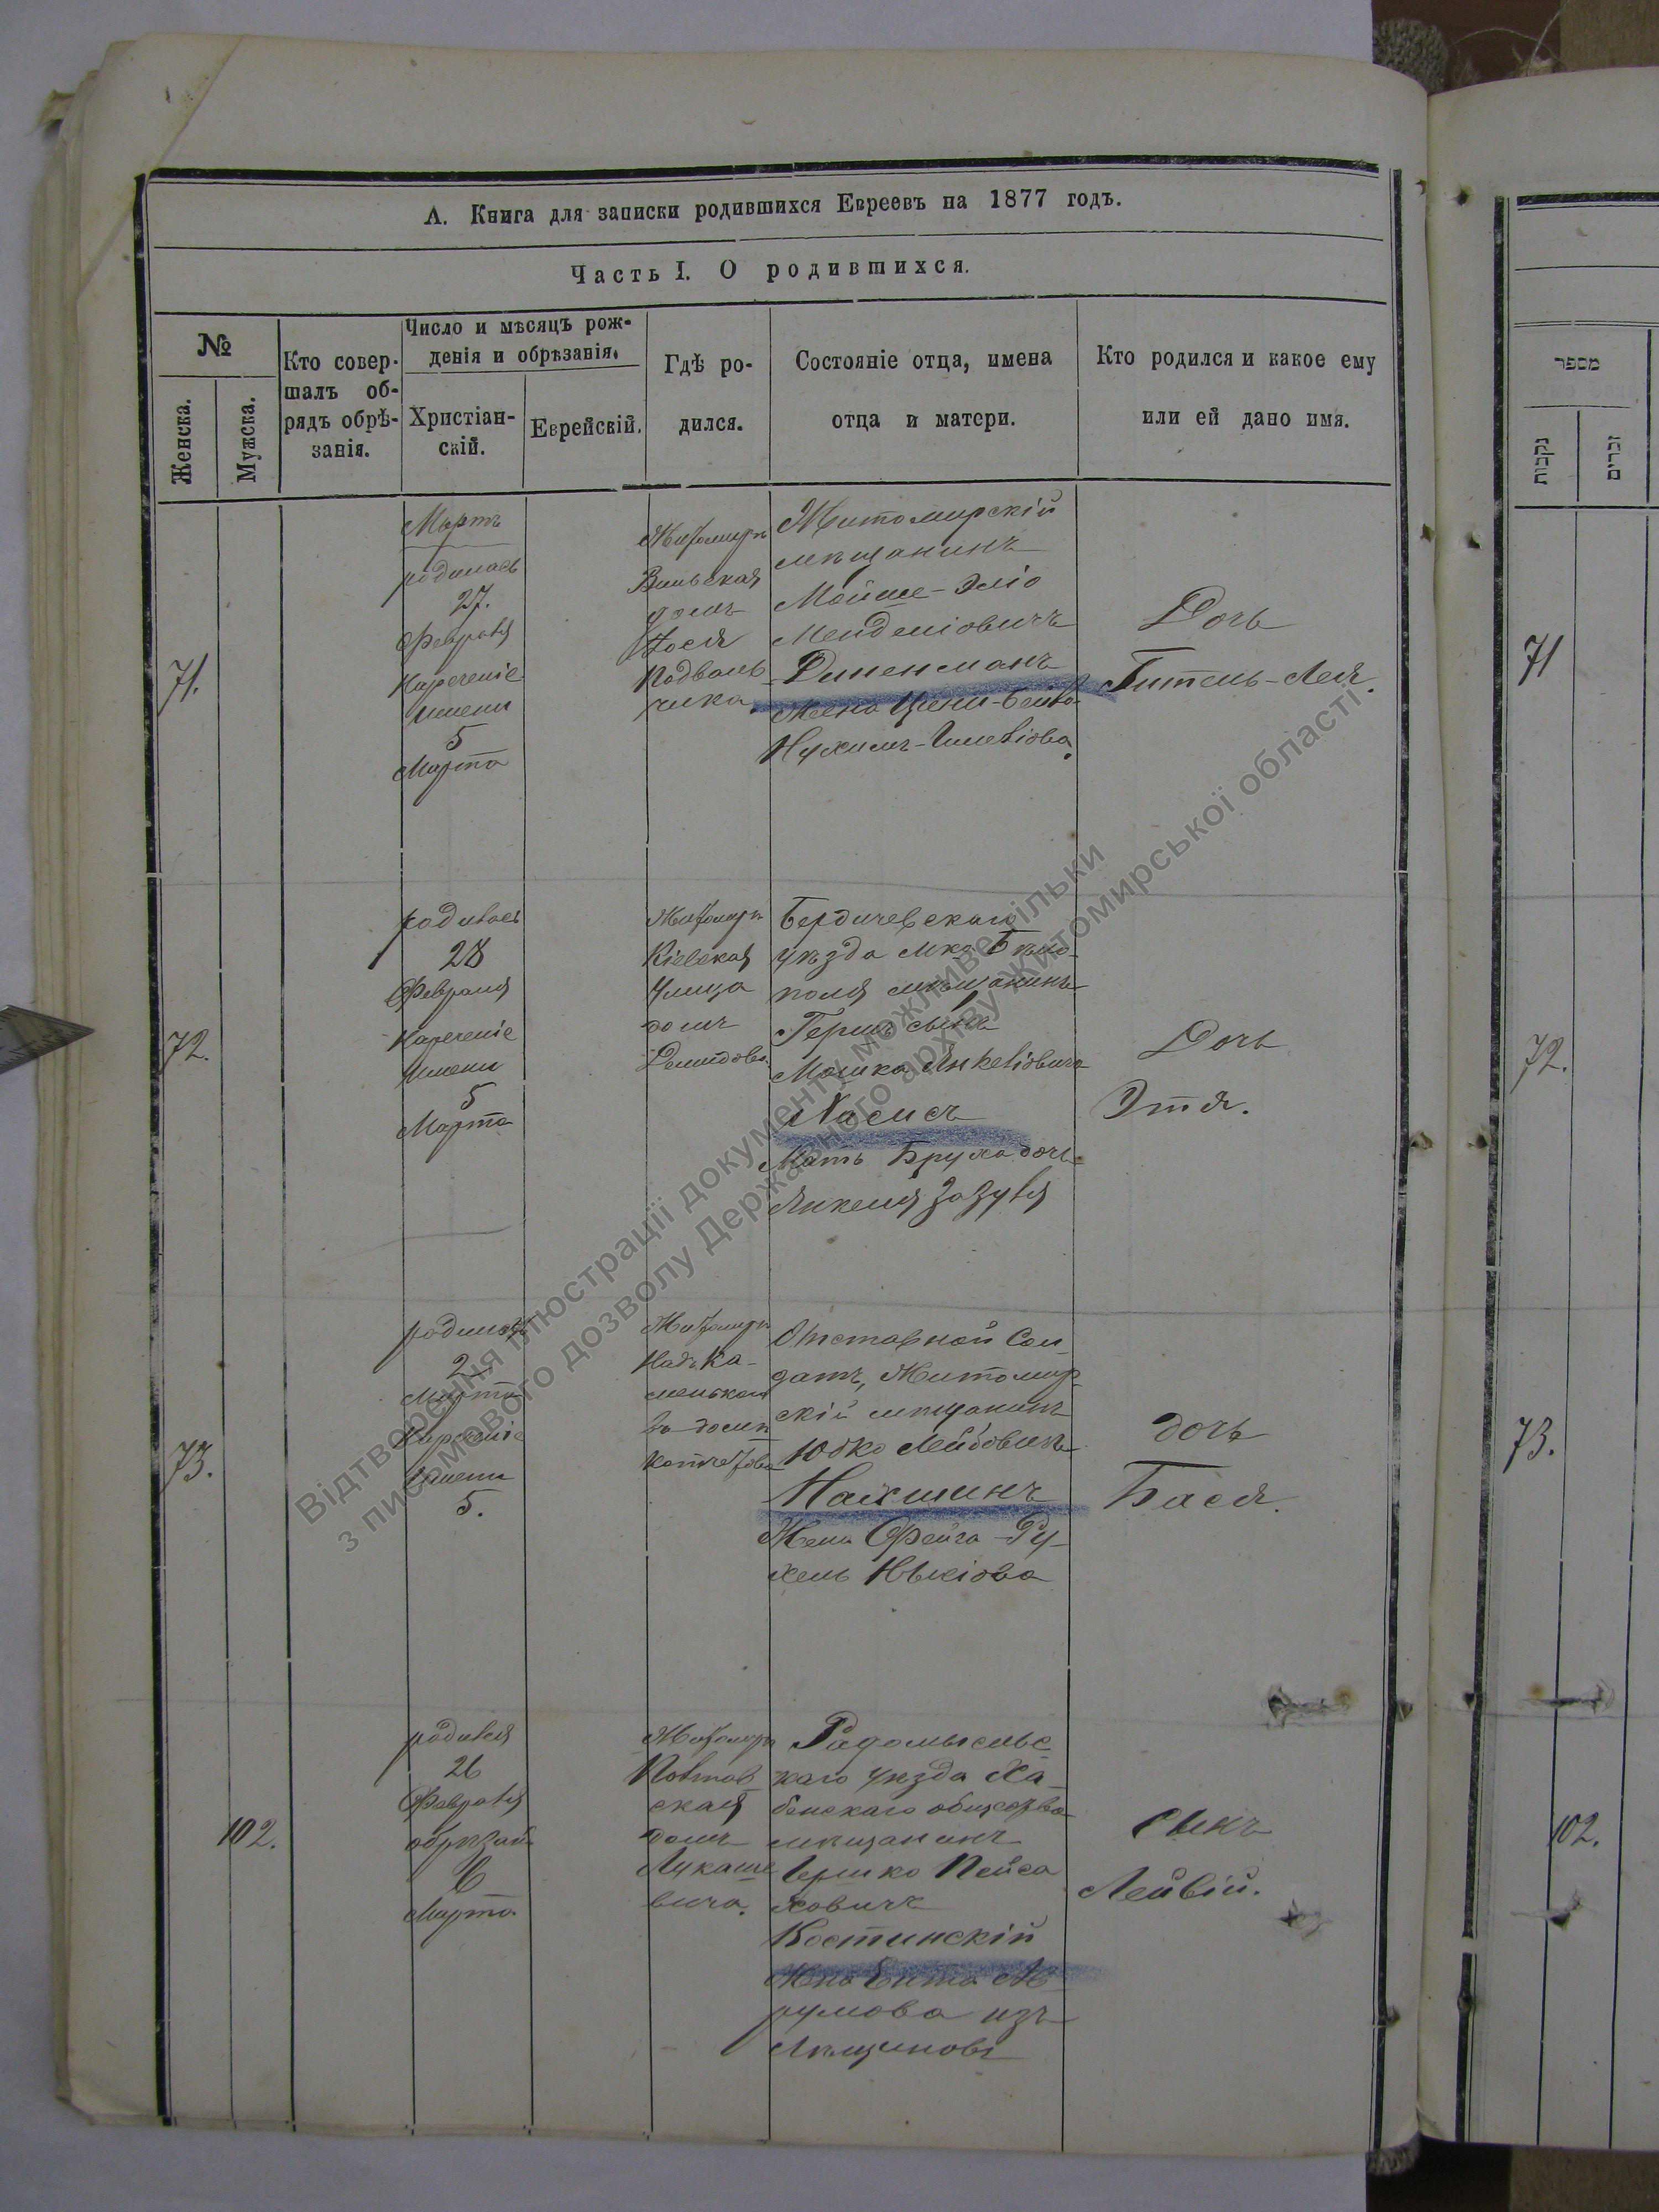 А. Книга для записки родившихся Евреевъ на 1877 годъ.
Часть I. О родившихся.
№
Женска.
Мужска.
Кто совер-
шалъ об-
рядъ обрѣ-
занія.
Число и мѣсяцъ рож-
денія и обрѣзанія.
Христіан-
скій.
Еврейскій.
Гдѣ ро-
дился.
Состояніе отца, имена
отца и матери.
Кто родился и какое ему
или ей дано имя.
71.
Мартъ
родилась
27.
Февраля
Нареченіе
Имени
5
Марта
Житомиръ
Вильская
домъ
Іося
Житомирскій
мѣщанинъ
Мойше-Эліо
Менделіовичъ
Диненманъ
Жена
Нухимъ-
Дочь
Гитель-Лея.
72.
родилась
28
Февраля
Нареченіе
Имени
5
Марта
Житомиръ
Кіевская
Улица
домъ
Демидова
Бердичевскаго
уѣзда мка Бѣло-
поля мѣщанинъ
Гершъ сынъ
Мошка Янкеліовича
Мать Бруха дочь
Янкеля Зазуля
Дочь
Этя.
73.
родилась
2
Марта
Нареченіе
Имени
5.
Житомиръ
Надъ Ка-
менькой
въ домѣ
Отставной Сол-
датъ, Житомир-
скій мѣщанинъ
Юдко Лейбовичъ
Жена Фейга-Ру-
хель
дочь
Бася.
102.
родился
26
Февраля
обрѣзанъ
6
Марта
Житомиръ
ская
домъ
Лукаше
вича.
Радомысльс-
каго уѣзда Ха-
бенскаго общества
мѣщанинъ
Гершко Пейса
ховичъ
Костинскій
Жна Ента Ав
румова изъ
Лѣщиновъ
Сынъ
Лейвій.
מספר
נקבות
זכרים
71
72.
73.
102.
Відтворення ілюстрації документу можливе тільки
з письмового дозволу Державного архіву Житомирської області